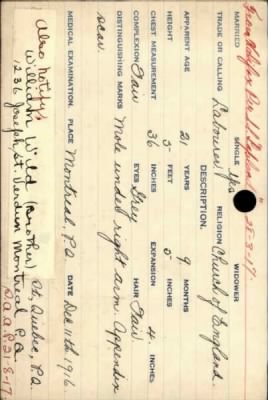 From Halifax Per S.S. Saxonia 28-3-17
MARRIED SINGLE Yes WIDOWER
TRADE OR CALLING Labourer RELIGION Church of England
DESCRIPTION.
APPARENT AGE 21 YEARS 9 MONTHS
HEIGHT 5 FEET 5 INCHES
CHEST MEASUREMENT 36 INCHES EXPANSION 4 INCHES
COMPLEXION Fair EYES Grey HAIR Fair
DISTINGUISHING MARKS Mole under right arm. Appendix
scar
MEDICAL EXAMINATION. PLACE Montreal, P.Q. DATE Dec 11th, 1916
Also notify:
William Wild (brother) Quebec, P.Q.
1236 Joseph St. Verdun Montreal P.Q.
21-8-17